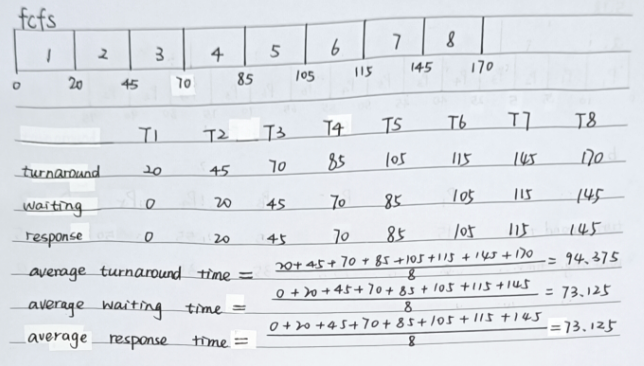 fcfs
1 2 3 4 5 6 7 8
0 20 45 70 85 105 115 145 170
T1 T2 T3 T4 T5 T6 T7 T8
turnaround 20 45 70 85 105 115 145 170
waiting 0 20 45 70 85 105 115 145
response 0 20 45 70 85 105 115 145
average turnaround time = 20+45+70+85+105+115+145+170 / 8 = 94.375
average waiting time = 0+20+45+70+85+105+115+145 / 8 = 73.125
average response time = 0+20+45+70+85+105+115+145 / 8 = 73.125